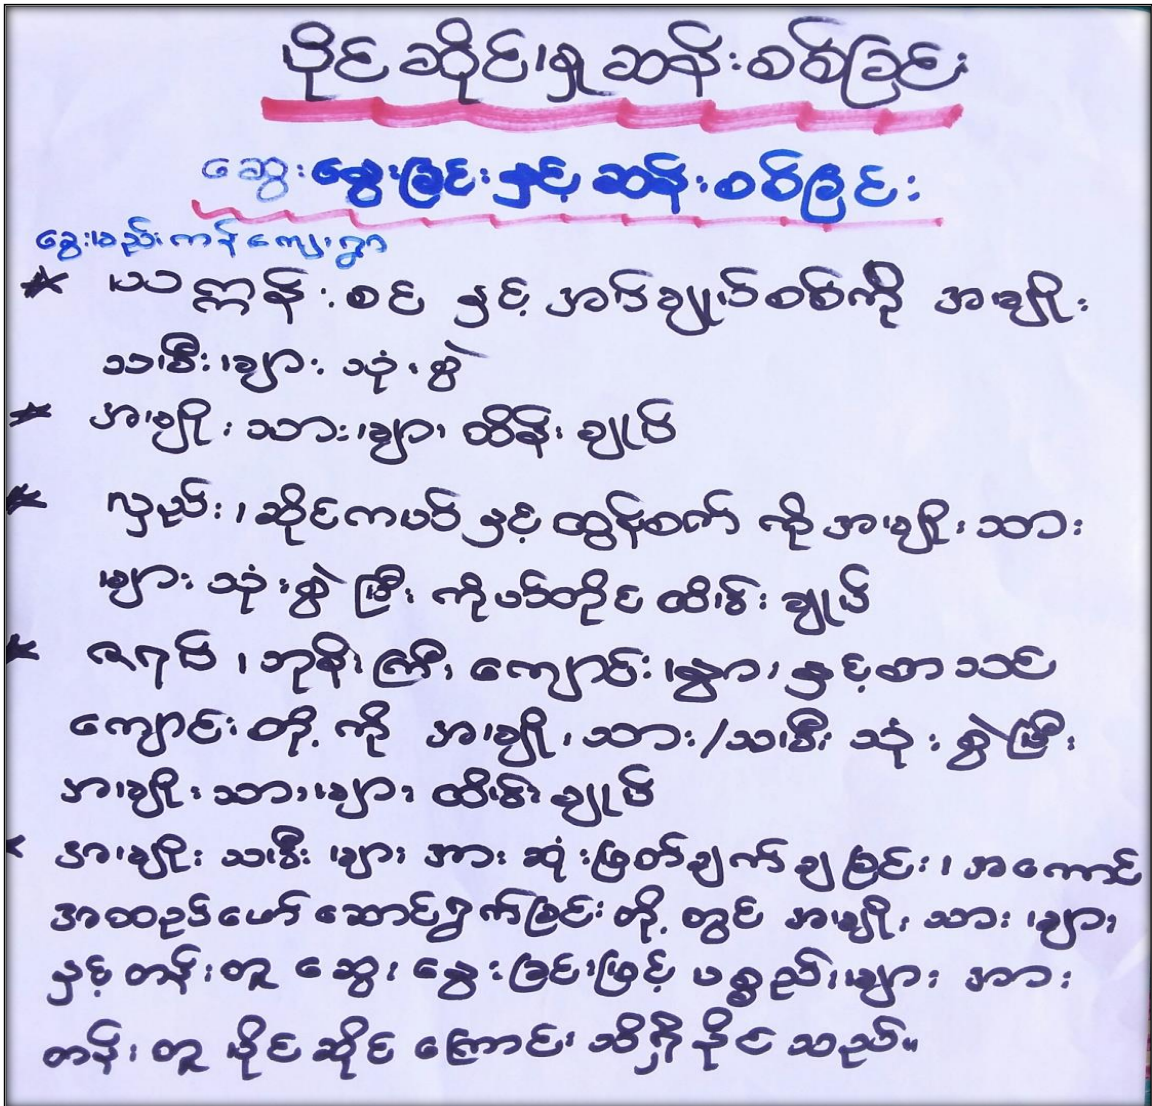 ပိုင်ဆိုင်မှု ဆန်းစစ်ခြင်း
ဆွေးနွေးခြင်းနှင့် ဆန်းစစ်ခြင်း
ကန်ကျေးရွာ
ယက္ကန်းစင် နှင့် အပ်ချုပ်စက်ကို အမျိုး
သမီးများ သုံးစွဲ
အမျိုးသားများ ထိန်းချုပ်
လှည်း၊ ဆိုင်ကယ်နှင့် ထွန်စက် ကို အမျိုးသား
များ သုံးစွဲပြီး ကိုယ်တိုင် ထိမ်းချုပ်
ဇရပ်၊ ဘုန်းကြီးကျောင်း၊ နွား၊ နှင့် စာသင်
ကျောင်းတို့ကို အမျိုးသား/သမီး သုံးစွဲပြီး
အမျိုးသားများ ထိမ်းချုပ်
အမျိုးသမီးများအား ဆုံးဖြတ်ချက်ချခြင်း၊ အကောင်
အထည်ဖော်ဆောင်ရွက်ခြင်းတို့တွင် အမျိုးသားများ
နှင့်တန်းတူ ဆွေးနွေးခြင်းဖြင့် ပစ္စည်းများအား
တန်းတူ ပိုင်ဆိုင်ကြောင်း သိရှိနိုင်သည်။